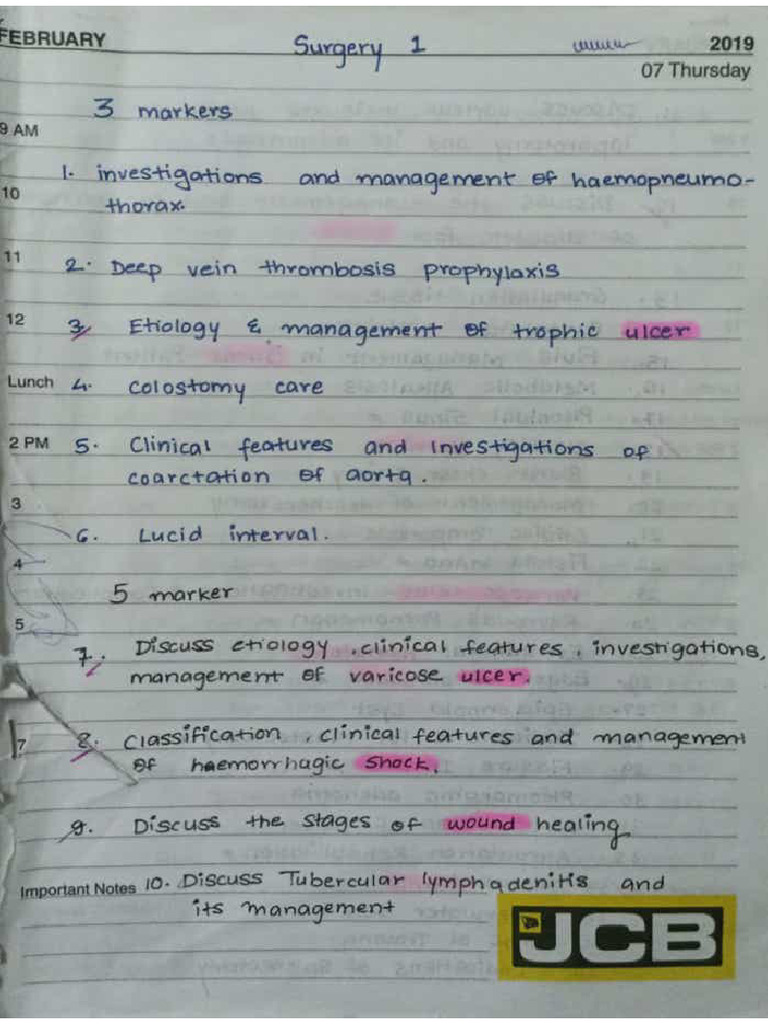 FEBRUARY Surgery 1 2019
07 Thursday
3 markers
9 AM
1. investigations and management of haemopneumo-
10 thorax.
11
2. Deep vein thrombosis prophylaxis
12 3. Etiology & management of trophic ulcer
Lunch 4. colostomy care
2 PM 5. Clinical features and Investigations of
coarctation of aorta.
3
6. Lucid interval.
4
5 marker
5
7. Discuss etiology, clinical features, investigations,
management of varicose ulcer.
8. classification, clinical features and management
of haemorrhagic shock.
9. Discuss the stages of wound healing
Important Notes 10. Discuss Tubercular lymphadenitis and
its management
JCB